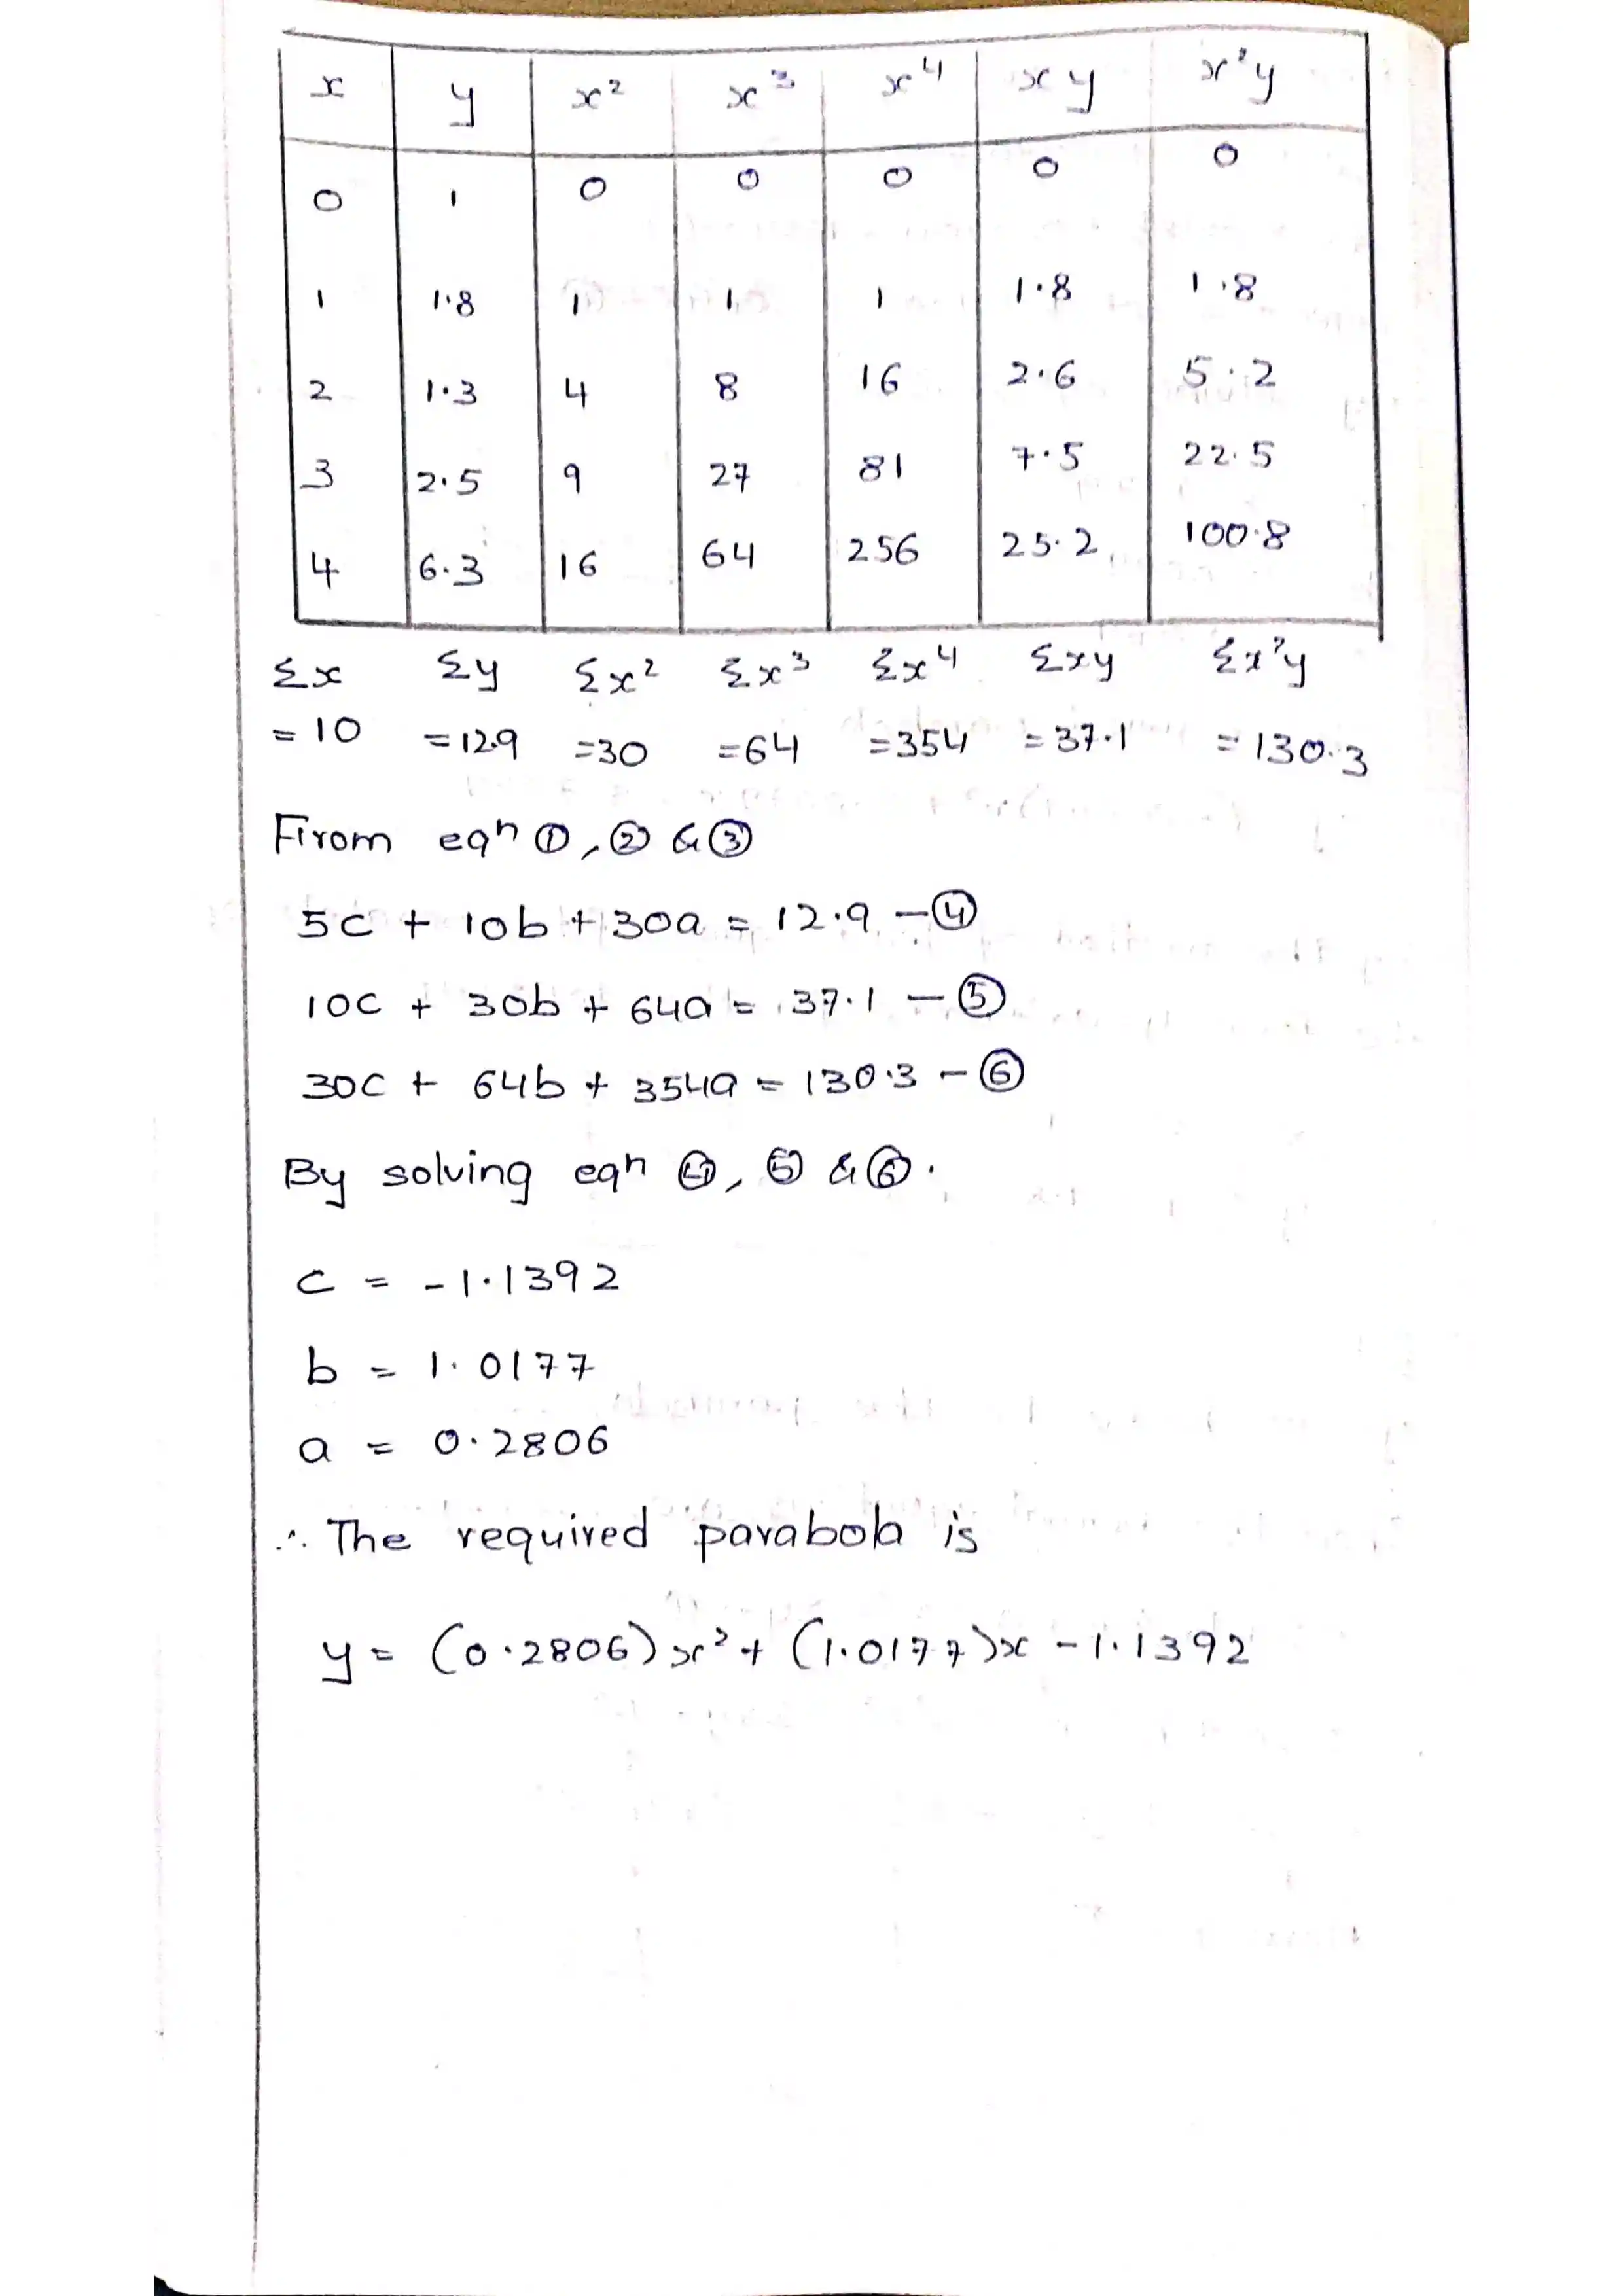 x y x² x³ x⁴ xy x²y
0 1 0 0 0 0 0
1 1.8 1 1 1 1.8 1.8
2 1.3 4 8 16 2.6 5.2
3 2.5 9 27 81 7.5 22.5
4 6.3 16 64 256 25.2 100.8
Σx Σy Σx² Σx³ Σx⁴ Σxy Σx²y
=10 =12.9 =30 =64 =354 =37.1 =130.3
From eqn ①, ② & ③
5c + 10b + 30a = 12.9 -④
10c + 30b + 64a = 37.1 -⑤
30c + 64b + 354a = 130.3 -⑥
By solving eqn ④, ⑤ & ⑥.
c = -1.1392
b = 1.0177
a = 0.2806
∴ The required parabola is
y = (0.2806)x² + (1.0177)x - 1.1392